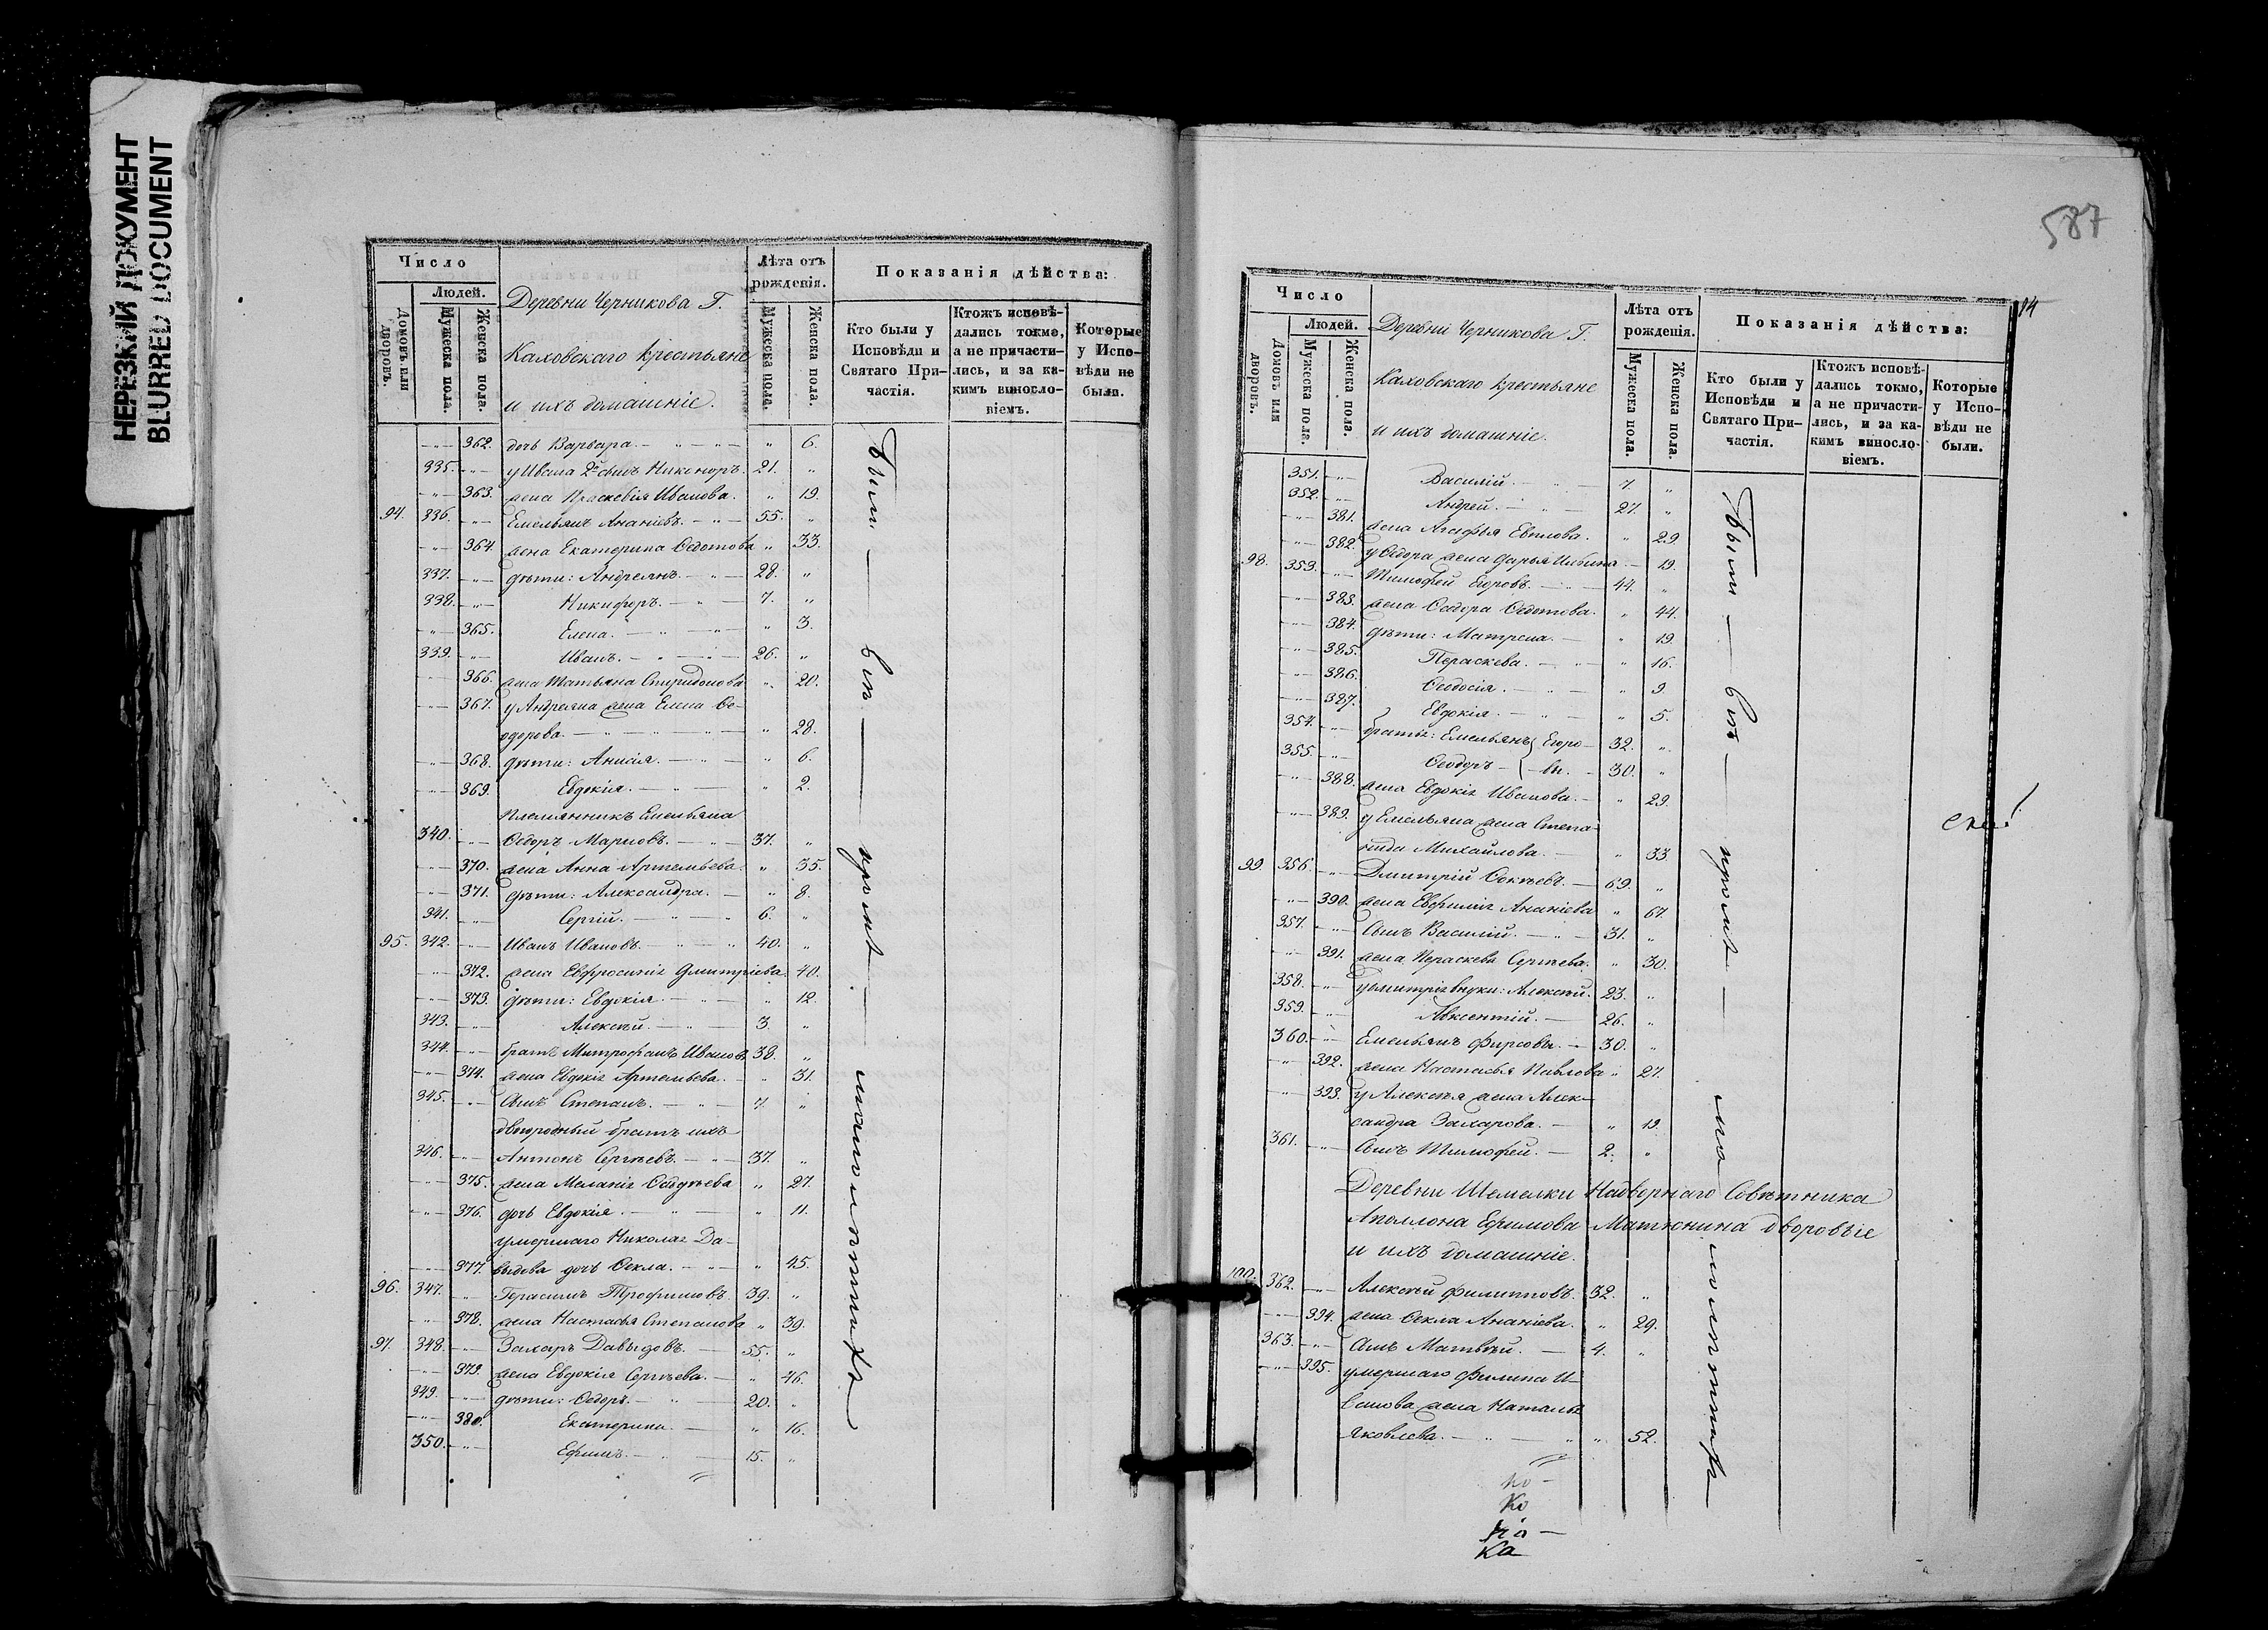 НЕРЕЗКИЙ ДОКУМЕНТ
BLURRED DOCUMENT
Число
Людей.
Домовъ или дворовъ.
Мужеска пола.
Женска пола.
Деревни Черникова Г.
Каховскаго крестьяне
и ихъ домашніе.
Лѣта отъ рожденія.
Мужеска пола.
Женска пола.
Показанія дѣйства:
Кто были у Исповѣди и Святаго Причастія.
Ктожъ исповѣдались токмо, а не причастились, и за какимъ винословіемъ.
Которые у Исповѣди не были.
362. дочь Варвара. 6.
335. у Ивана 2й сынъ Никаноръ. 21.
363. жена Праскевія Иванова. 19.
94. 336. Емельянъ Ананіевъ. 55.
364. жена Екатерина Ѳедотова 33.
337. дѣти: Андреянъ. 28.
338. Никифоръ. 7.
365. Елена. 3.
339. Иванъ. 26.
366. жена Татьяна Спиридонова 20.
367. у Андреяна жена Елена Ѳе-
одорова. 28.
368. дѣти: Анисія. 6.
369. Евдокія. 2.
племянникъ Емельяна
340. Ѳедоръ 37.
370. жена Анна Артемьева. 35.
371. дѣти: Александра. 8.
341. Сергій. 6.
95. 342. Иванъ Ивановъ. 40.
372. жена Евфросинія Дмитріева. 40.
373. дѣти: Евдокія. 12.
343. Алексѣй. 3.
344. братъ Митрофанъ Ивановъ 38.
374. жена Евдокія Артемьева. 31.
345. Сынъ Степанъ. 7.
двоюродный братъ ихъ
346. Антонъ Сергѣевъ. 37.
375. жена Меланія Ѳаддѣева 27.
376. дочь Евдокія. 11.
умершаго Николая Да-
377. выдова дочь Ѳекла. 45.
96. 347. Герасимъ Трофимовъ. 39.
378. жена Настасья Степанова 39.
97. 348. Захаръ Давыдовъ. 55.
379. жена Евдокія Сергѣева. 46.
349. дѣти: Ѳедоръ. 20.
380. Екатерина. 16.
350. Ефимъ. 15.
Были — всѣ — кромѣ — малолѣтнихъ
587
14
Число
Людей.
Домовъ или дворовъ.
Мужеска пола.
Женска пола.
Деревни Черникова Г.
Каховскаго крестьяне
и ихъ домашніе.
Лѣта отъ рожденія.
Мужеска пола.
Женска пола.
Показанія дѣйства:
Кто были у Исповѣди и Святаго Причастія.
Ктожъ исповѣдались токмо, а не причастились, и за какимъ винословіемъ.
Которые у Исповѣди не были.
351. Василій. 7.
352. Андрей. 27.
381. жена Агафья 29.
382. у Ѳедора жена Дарья 19.
98. 353. Тимофей Егоровъ. 44.
383. жена Ѳедора Ѳедотова. 44.
384. дѣти: Матрена. 19.
385. Пераскева. 16.
386. Ѳеодосія. 9.
387. Евдокія. 5.
354. братья: Емельянъ Егоро- 32.
355. Ѳеодоръ вы. 30.
388. жена Евдокія Иванова. 29.
389. у Емельяна жена Степа-
нида Михайлова. 33
99. 356. Дмитрій 69.
390. жена Евфимія Ананіева 67.
357. Сынъ Василій. 31.
391. жена Пераскева Сергѣева. 30.
358. у Дмитрія внуки: Алексѣй. 23.
359. Авксентій. 26.
360. Емельянъ Фирсовъ. 30.
392. жена Настасья Павлова 27.
393. у Алексѣя жена Алек-
сандра Захарова. 19.
361. Сынъ Тимофей. 2.
Деревни Шемелки Надворнаго Совѣтника
Аполлона Ефимова Матюнина дворовые
и ихъ домашніе.
100. 362. Алексѣй Филипповъ. 32.
394. жена Ѳекла Ананіева. 29.
363. Сынъ Матвѣй. 4.
395. умершаго Филипа И-
ванова жена Наталья
Яковлева. 52.
Были — всѣ — кромѣ — малолѣтнихъ
Ко
Ка